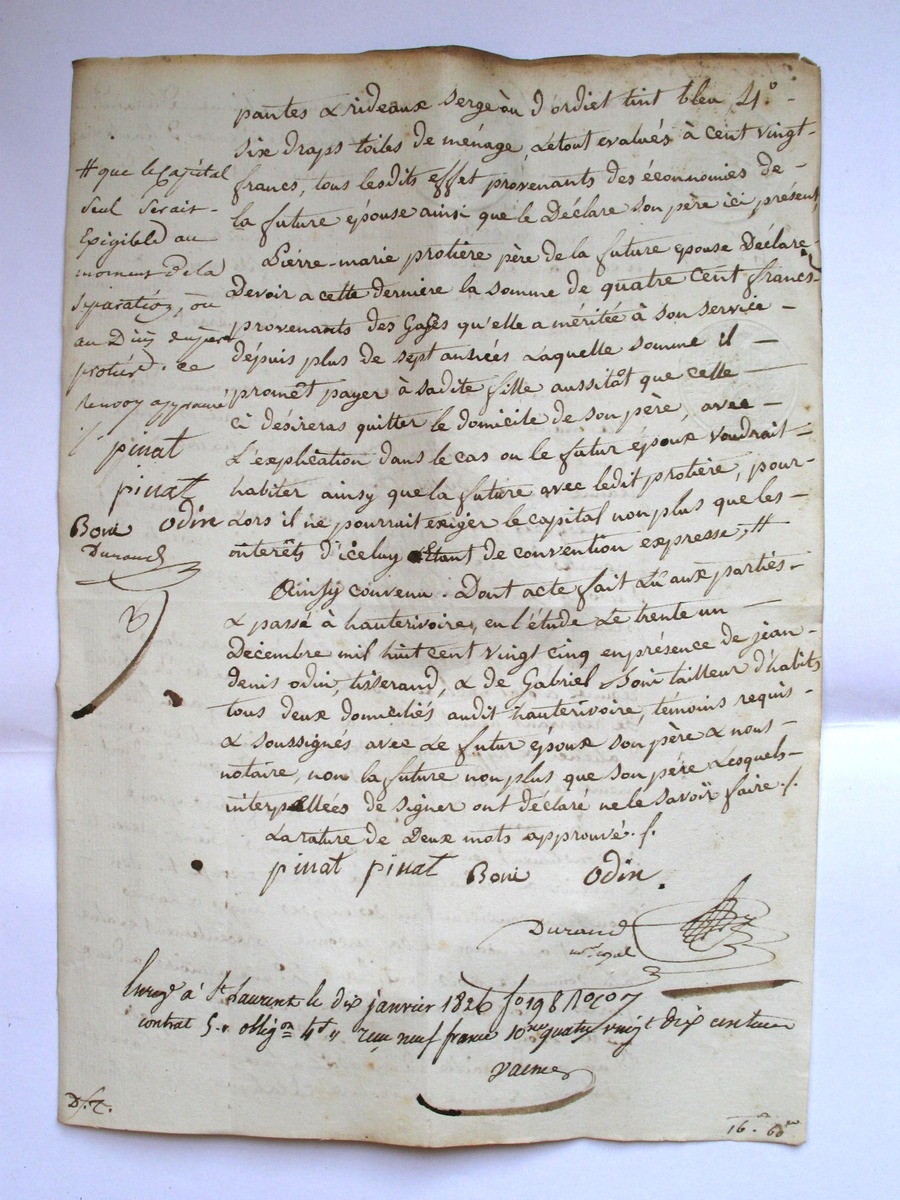 pantes & rideaux serge ou d'ordiet tint bleu, 4.º
six draps toiles de ménage, Le tout evalués à cent vingt
francs, tous lesdits effet provenants des éconnomies de
la future épouse ainsi que le Déclare son père ici présent,
Pierre-marie protière père de la future épouse Déclare
Devoir a cette derniere la somme de quatre cent francs
provenants des Gages qu'elle a méritée à son service
dépuis plus de sept années Laquelle somme il
promêt payer à sadite fille aussitôt que celle
ci désireras quitter le domicile de son père, avec
L'explication dans le cas ou le futur époux voudrait
habiter ainsy que la future avec ledit protière, pour
Lors il ne pourrait exiger le capital non plus que les
intérêts d'iceluy Etant de convention expresse, #
Ainsy convenu. Dont acte fait Lû aux parties
& passé à hauterivoire, en l'étude Le trente un
Décembre mil huit cent vingt cinq en présence de jean
denis odin, tisserand, & de Gabriel Boni tailleur d'habits
tous deux domiciliés audit hauterivoire, témoins requis
& soussignés avec Le futur époux son père & nous
notaire, non la future non plus que son père Lesquels
interpellées de signer ont déclaré ne le savoir faire ./.
La rature de Deux mots approuvé. /.
pinat pinat Boni odin
Durand
# que le Capital
seul serait
Exigible au
moment de la
séparation, ou
au Decès
protière. ce
Renvoy approuvé
pinat
pinat
Boni odin
Durand
Enregé à St Laurent le dix janvier 1826 fo 198
contrat 5. obligon 4f " reçu neuf francs 10me quatre vingt dix centimes